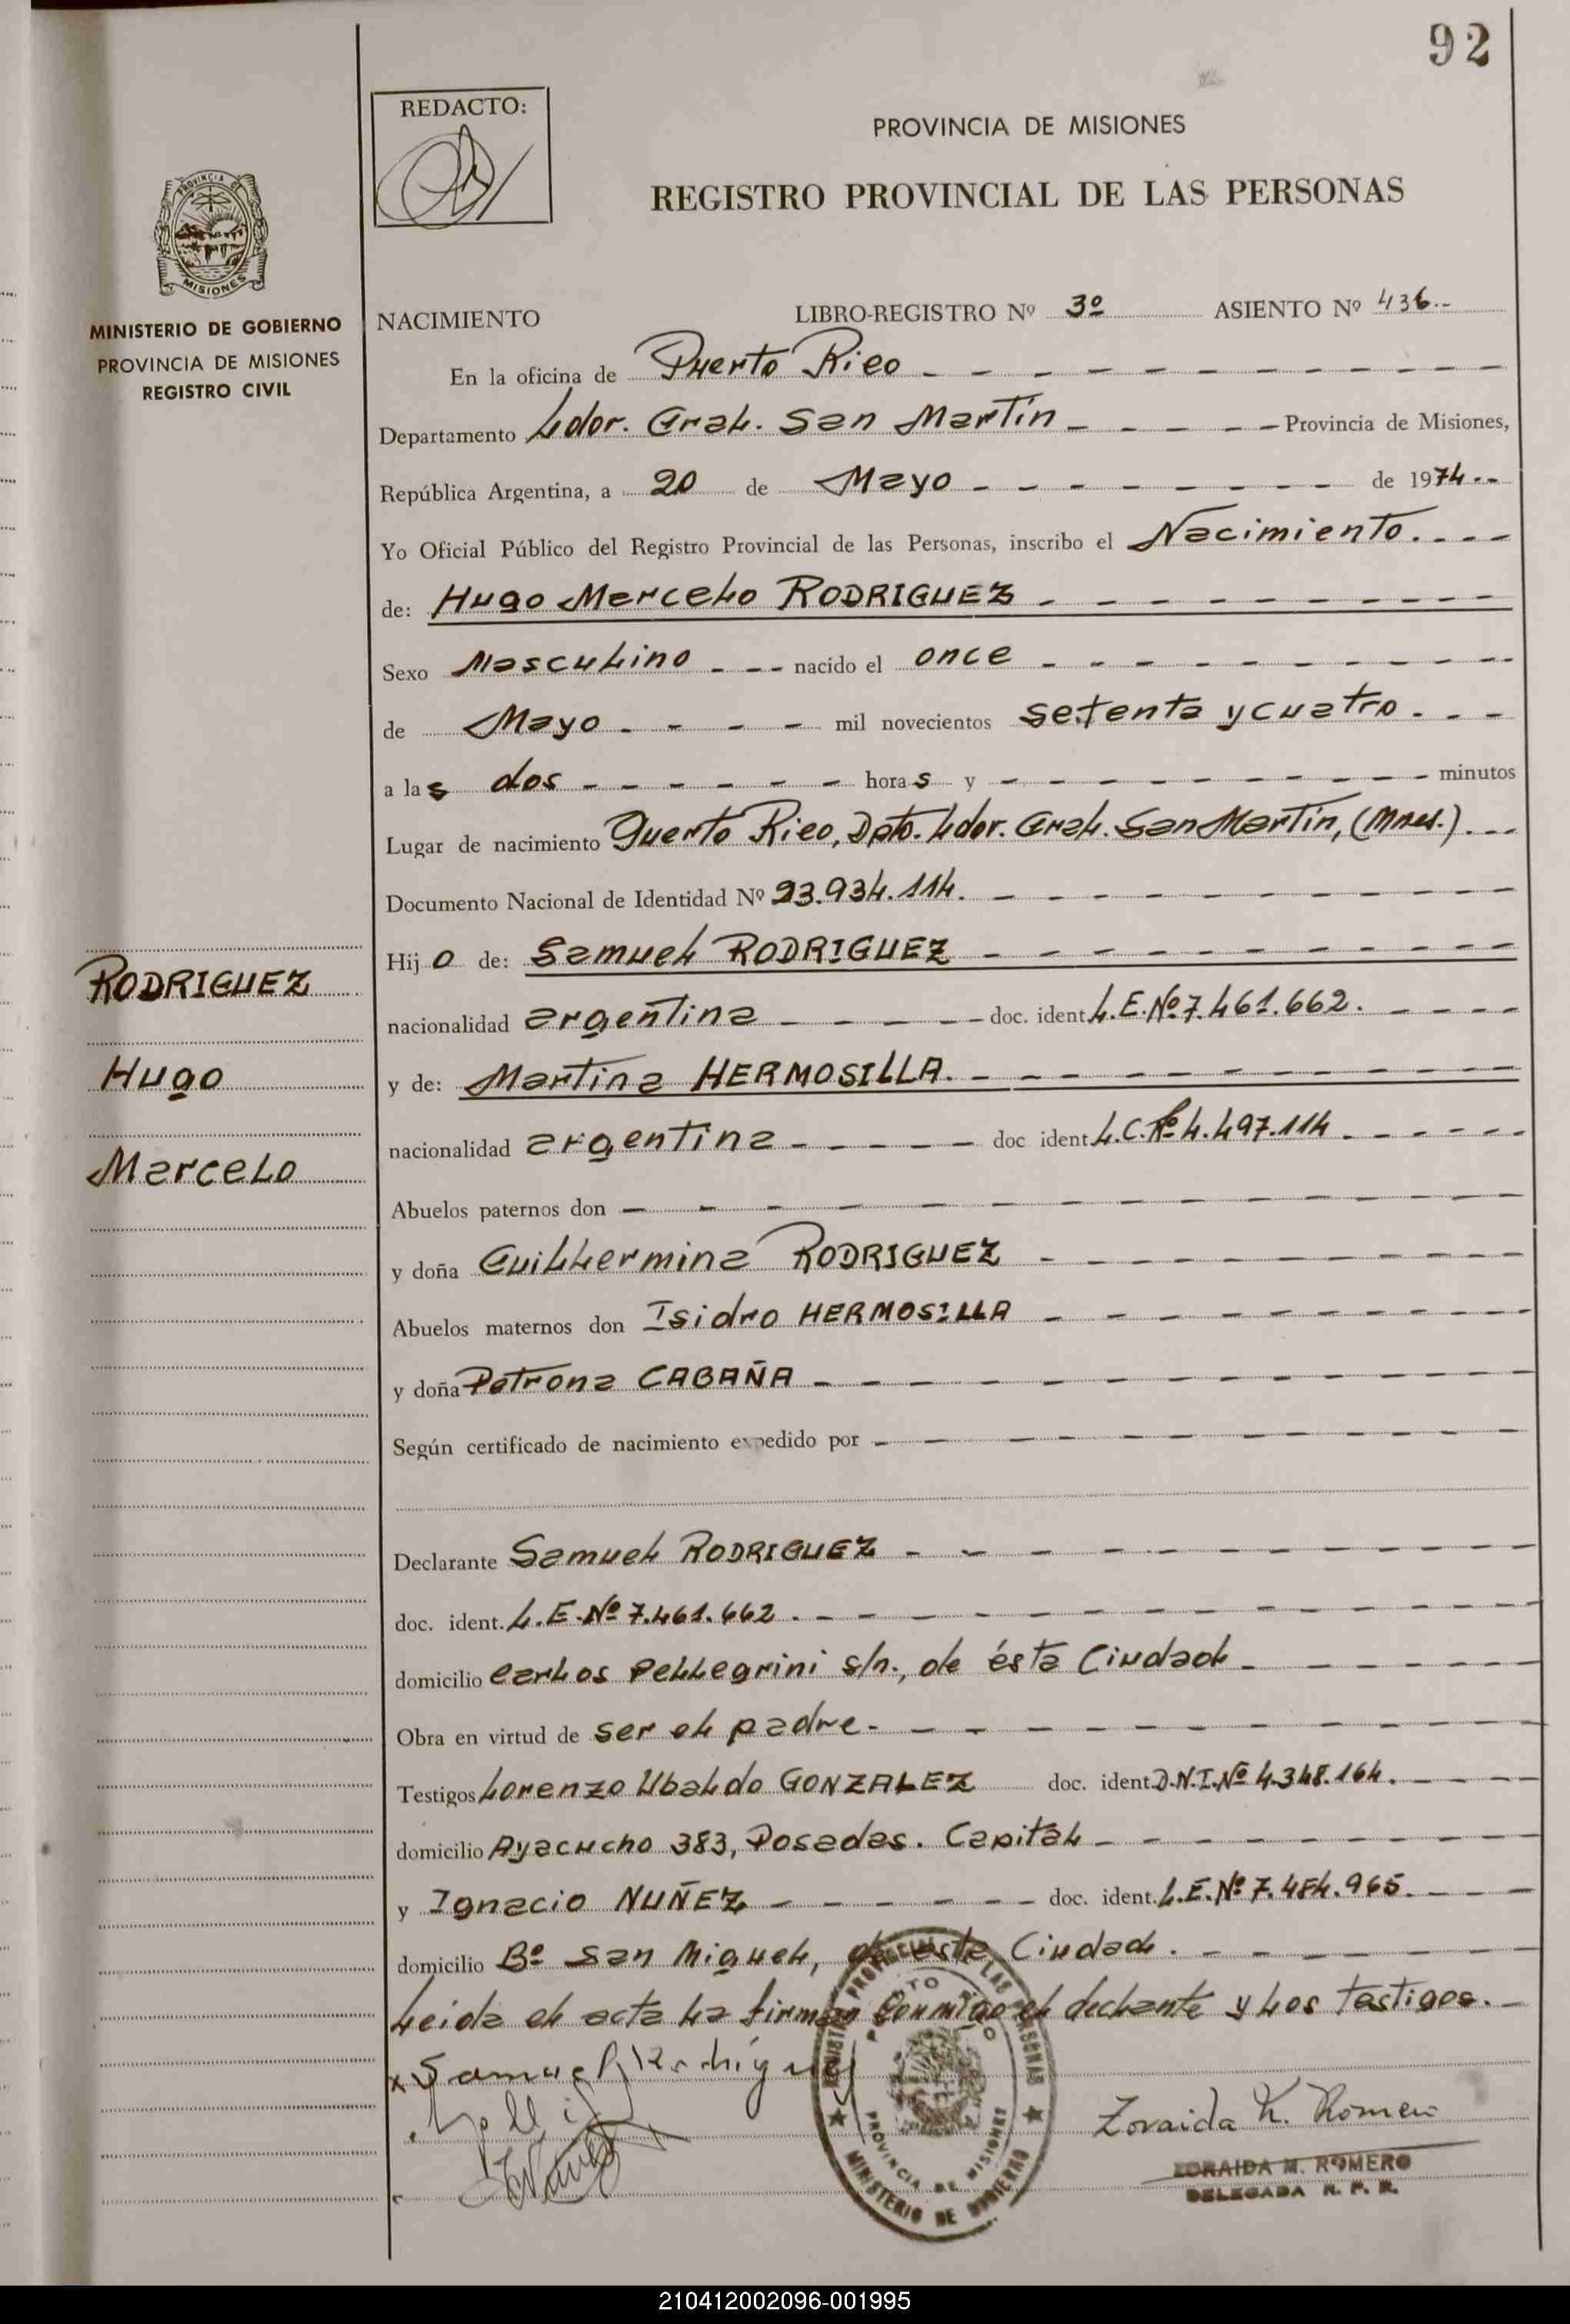 92
REDACTO:
PROVINCIA DE MISIONES
REGISTRO PROVINCIAL DE LAS PERSONAS
PROVINCIA DE
MISIONES
MINISTERIO DE GOBIERNO
PROVINCIA DE MISIONES
REGISTRO CIVIL
NACIMIENTO LIBRO-REGISTRO Nº 3º ASIENTO Nº 436
En la oficina de Puerto Rico
Departamento Ldor. Gral. San Martín Provincia de Misiones,
República Argentina, a 20 de Mayo de 1974
Yo Oficial Público del Registro Provincial de las Personas, inscribo el Nacimiento.
de: Hugo Marcelo RODRIGUEZ
Sexo Masculino nacido el once
de Mayo mil novecientos setenta y cuatro
a las dos horas y minutos
Lugar de nacimiento Puerto Rico, Dpto. Ldor. Gral. San Martín, (Mnes.)
Documento Nacional de Identidad Nº 23.934.114.
Hijo de: Samuel RODRIGUEZ
nacionalidad argentina doc. ident. L.E.Nº 7.461.662.
y de: Martina HERMOSILLA.
nacionalidad argentina doc ident. L.C.Nº 4.497.114
Abuelos paternos don
y doña Guillermina RODRIGUEZ
Abuelos maternos don Isidro HERMOSILLA
y doña Petrona CABAÑA
Según certificado de nacimiento expedido por
Declarante Samuel RODRIGUEZ
doc. ident. L.E.Nº 7.461.662.
domicilio Carlos Pellegrini s/n., de ésta Ciudad
Obra en virtud de ser el padre.
Testigos Lorenzo Ubaldo GONZALEZ doc. ident. D.N.I.Nº 4.348.164.
domicilio Ayacucho 383, Posadas. Capital
y Ignacio NUÑEZ doc. ident. L.E.Nº 7.484.965.
domicilio Bº San Miguel, de esta Ciudad.
Leida el acta la firman conmigo el declante y los testigos.
x Samuel Rodriguez
Zoraida M. Romero
ZORAIDA M. ROMERO
DELEGADA R. P. P.
PROVINCIA DE MISIONES
MINISTERIO DE GOBIERNO
RODRIGUEZ
Hugo
Marcelo
210412002096-001995